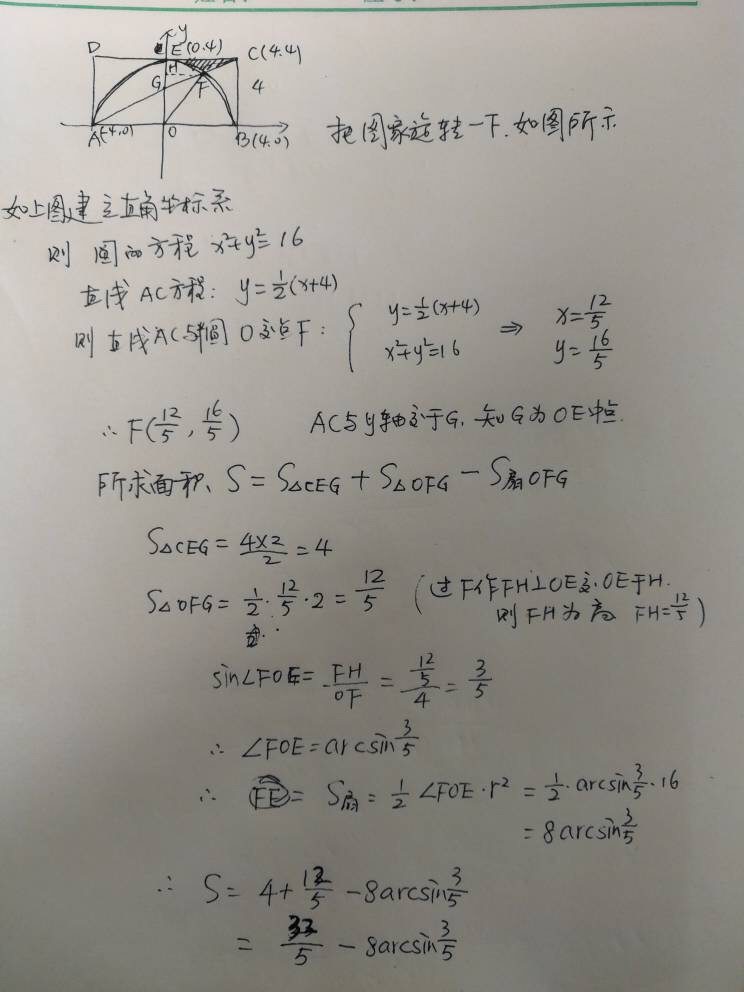 y
D E(0,4) C(4,4)
H
G F 4
A(-4,0) O B(4,0)
把图象旋转一下.如图所示
如上图建立直角坐标系
则 圆的方程 x²+y²=16
直线AC方程: y=½(x+4)
则直线AC与半圆O交点F: { y=½(x+4) x²+y²=16 ⇒ x=12/5 y=16/5
∴ F(12/5, 16/5) AC与y轴交于G, 知G为OE中点.
所求面积、S=S△CEG+S△OFG-S扇OFG
S△CEG=4×2/2=4
S△OFG=1/2·12/5·2=12/5 (过F作FH⊥OE交OE于H. 则FH为高 FH=12/5)
sin∠FOE=FH/OF=(12/5)/4=3/5
∴ ∠FOE=arcsin3/5
∴ FE= S扇=1/2∠FOE·r²=1/2·arcsin3/5·16
=8arcsin3/5
∴ S=4+12/5-8arcsin3/5
=32/5-8arcsin3/5